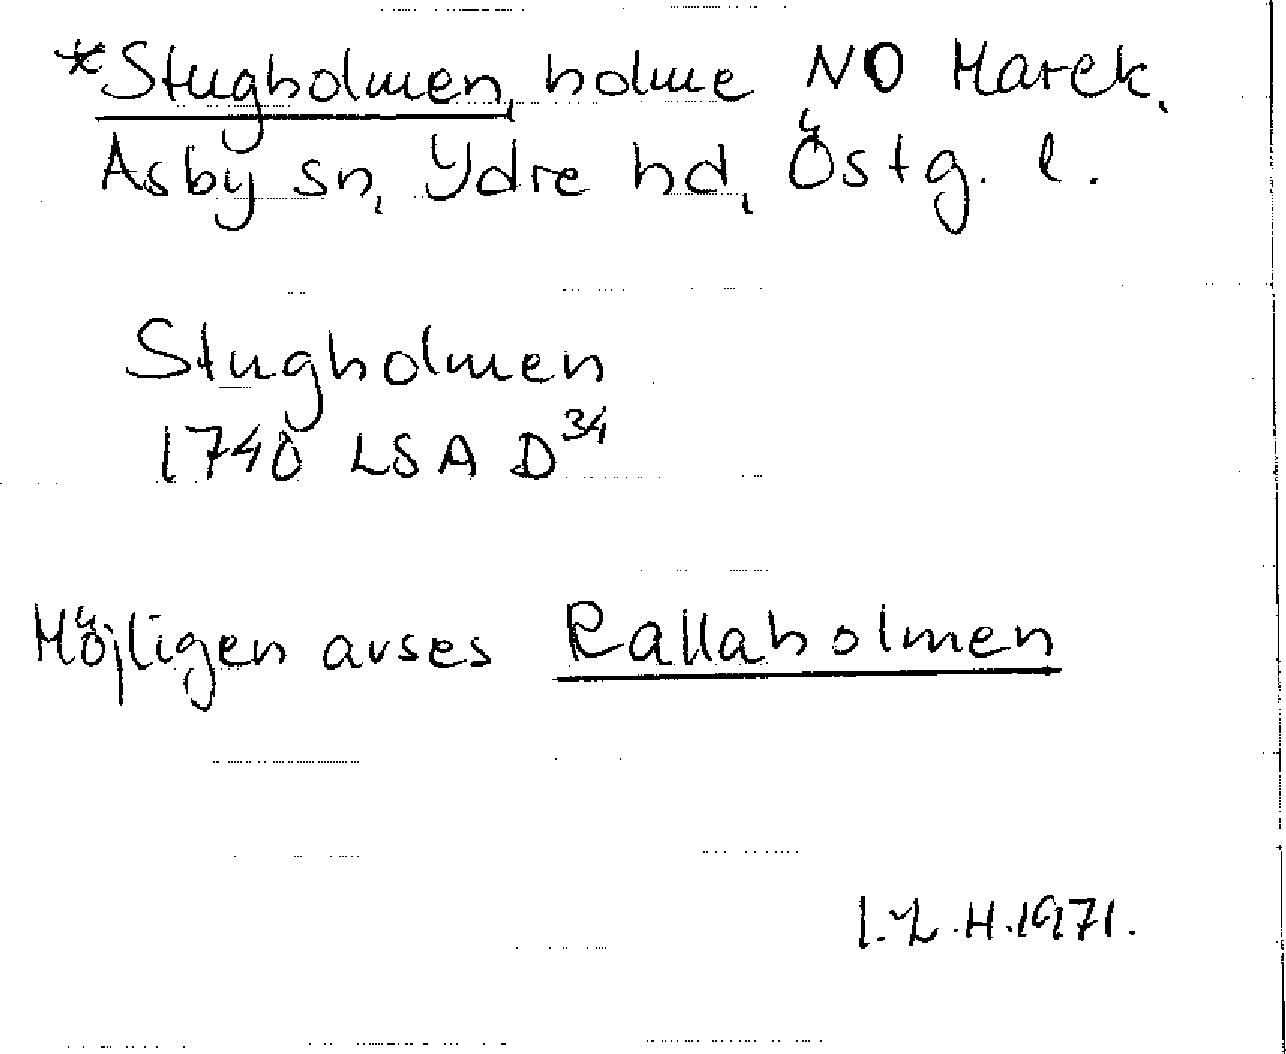 *Stugholmen, holme NO Marek,
Asby sn, Ydre hd, Östg. l.
Stugholmen
1740 LSA D34
Möjligen avses Rallaholmen
I. L. H. 1971.